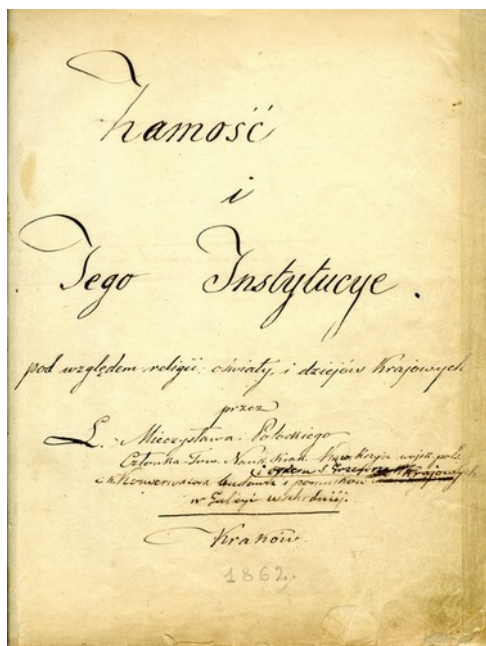 Zamość
i
Jego Instytucye.
pod względem religii, oświaty, i dziejów Krajowych
przez
L. Mieczysława Potockiego
Członka Tow. Nauk. Krak. Kaw. Krzyża wojsk. pols.
i Orderu S. Grzegorza
c. k. Konserwatora budowli i pomników Krajowych
w Galicyi wschodniéj.
Kraków.
1862.